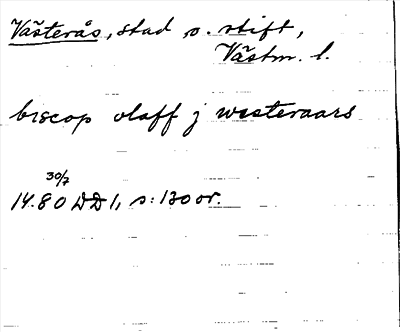 Västerås, stad o. stift,
Västm. l.
biscop olaff j westeraars
30/7
14.80 DD 1, s: 130 or.